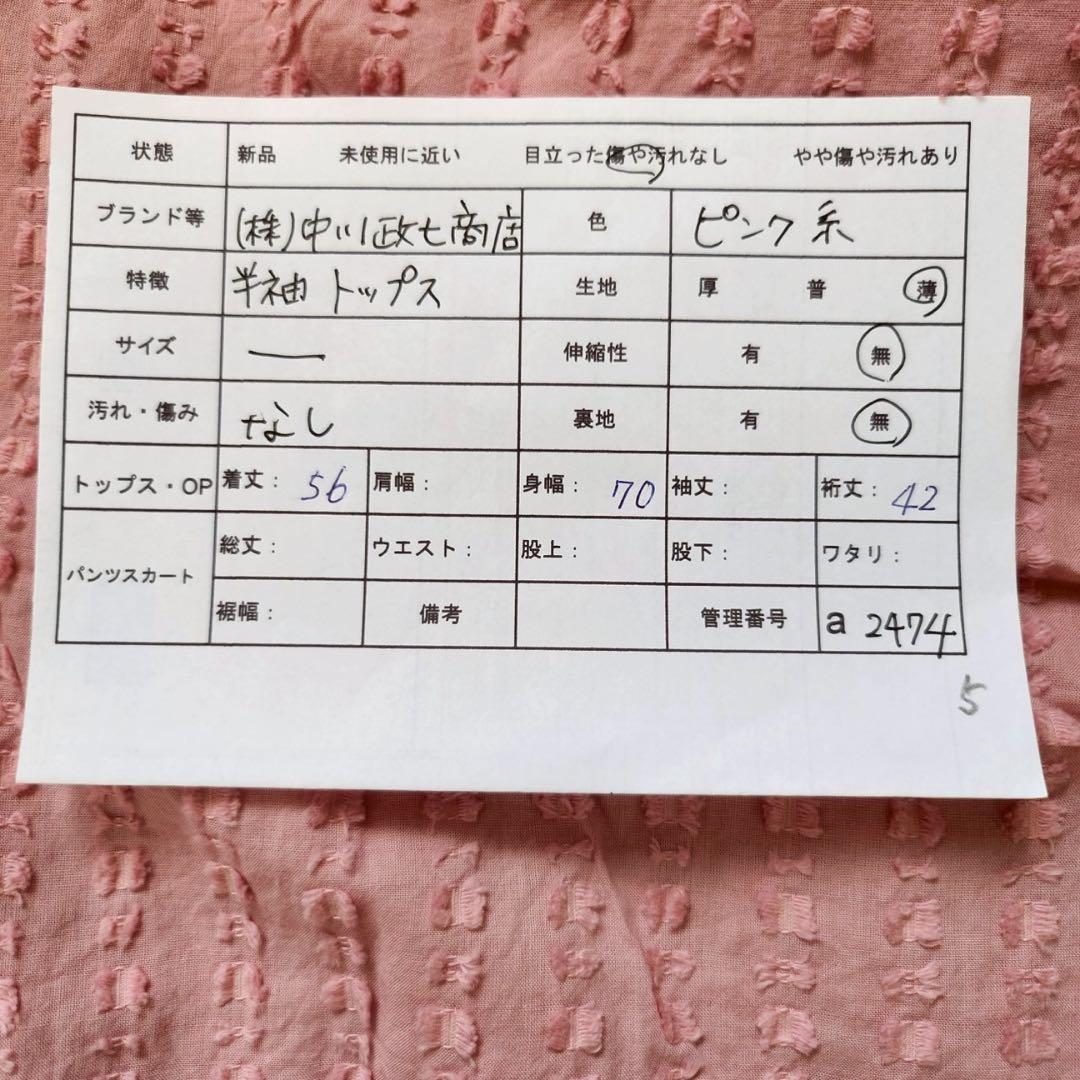 状態 新品 未使用に近い 目立った傷や汚れなし やや傷や汚れあり
ブランド等 (株)中川政七商店 色 ピンク系
特徴 半袖トップス 生地 厚 普 薄
サイズ ー 伸縮性 有 無
汚れ・傷み なし 裏地 有 無
トップス・OP 着丈: 56 肩幅: 身幅: 70 袖丈: 裄丈: 42
パンツスカート 総丈: ウエスト: 股上: 股下: ワタリ:
裾幅: 備考 管理番号 a 2474
5